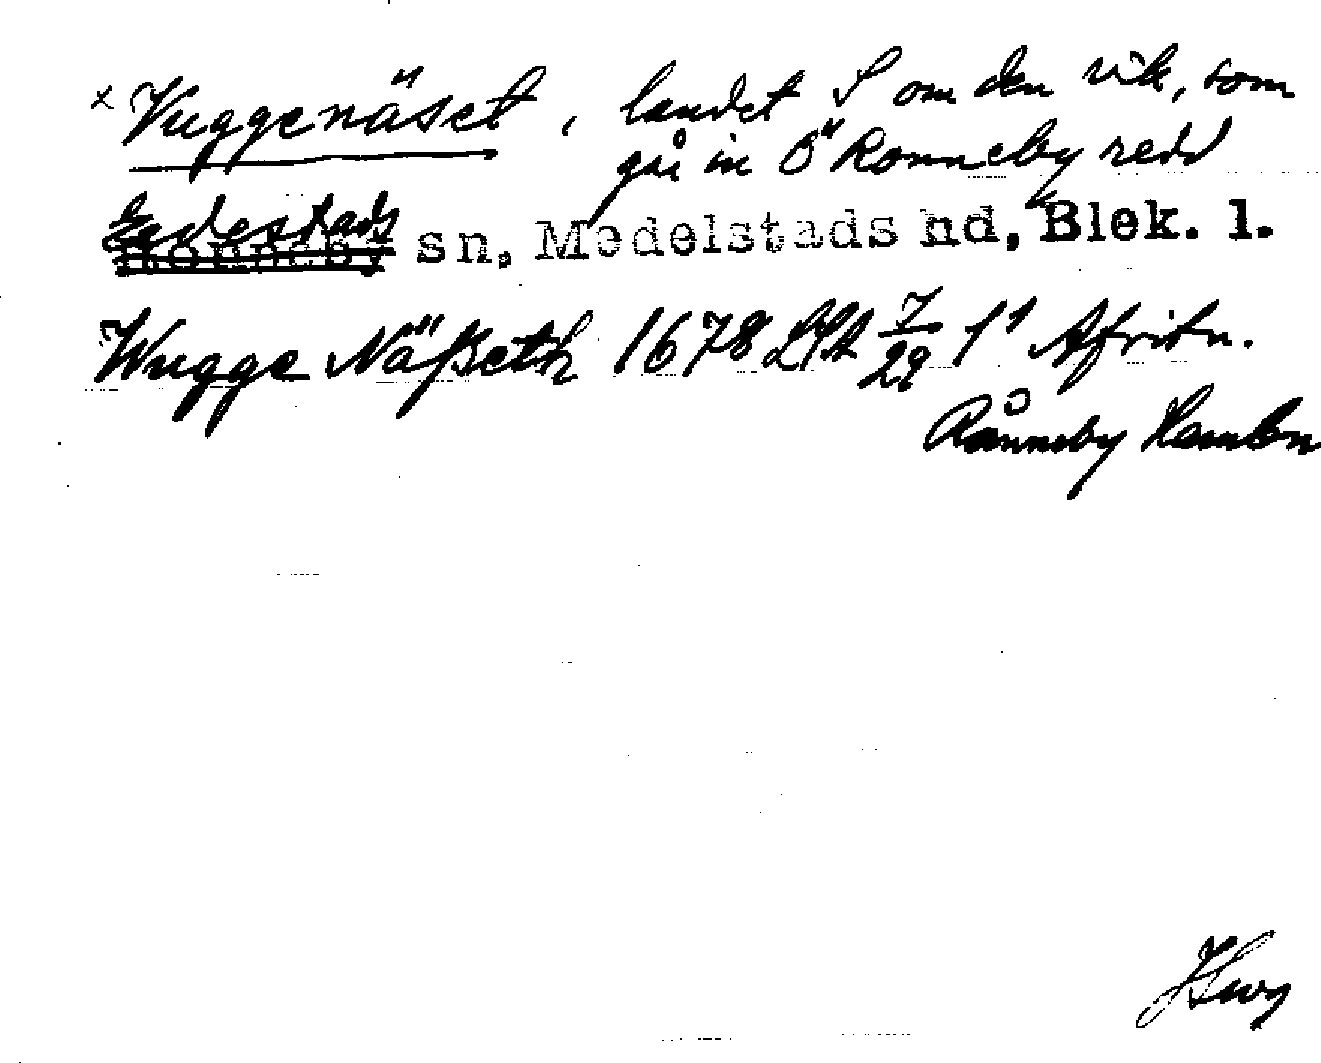 x Vuggenäset, landet S om den vik, som
går in Ö Ronneby redd
Edestads sn, Medelstads hd, Blek. l.
Wugge Näßeth 1678 7/29 f 1 Afritn.
Rånneby Hambn